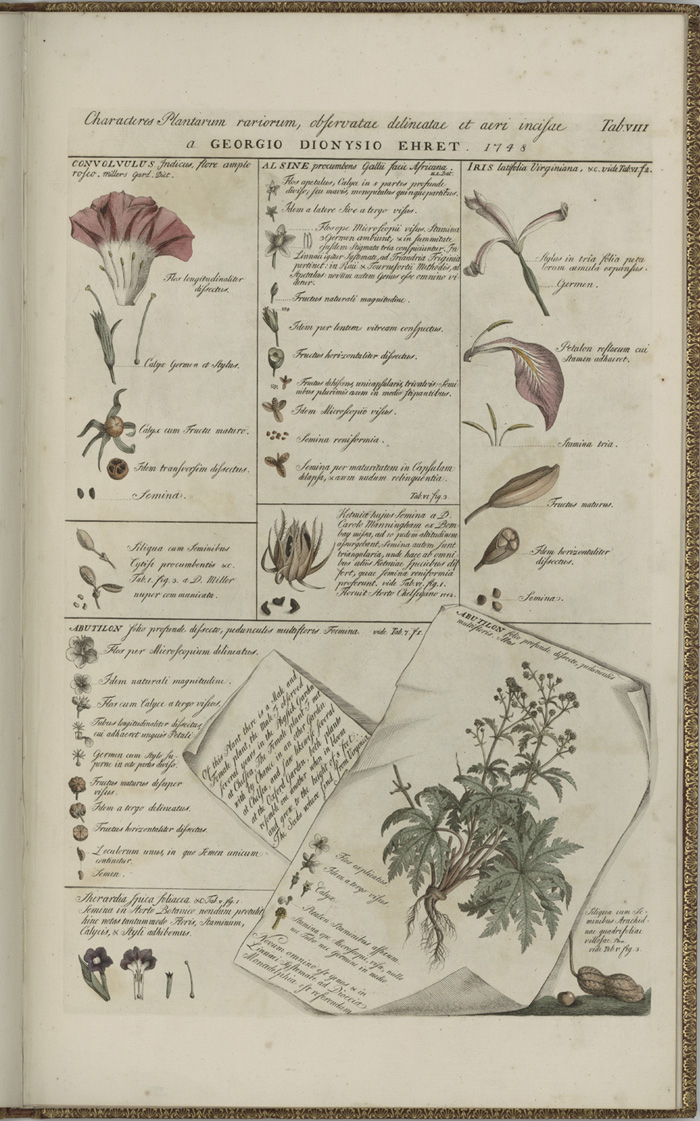 Characteres Plantarum rariorum, observatae delineatae et aeri incisae Tab.VIII
a GEORGIO DIONYSIO EHRET. 1748
CONVOLVULUS Indicus, flore amplo
roseo. millers Gard. Dict.
Flos longitudinaliter
dissectus.
Calyx Germen et Stylus.
Calyx cum Fructu maturo.
Idem transversim dissectus.
Semina.
ALSINE procumbens Gallii facie Africana.
Flos apetalus, Calyx in 5 partes profunde
diviso; seu mavis, monopetalus quinquepartitus.
Idem a latere sive a tergo visus.
Flos ope Microscopii visus. Stamina
3 Germen ambiunt, & in summitate
ejusdem Stigmata tria conspiciuntur. In
Linnaei igitur Systemate, ad Triandria Trigynia
pertinet: in Raii & Tournefortii Methodis, ad
Apetalas: novum autem Genus esse omnino vi-
detur.
Fructus naturali magnitudine.
Idem per lentem vitream conspectus.
Fructus horizontaliter dissectus.
Fructus dehiscens, unicapsularis, trivalvis: Semi-
nibus plurimis axem in medio stipantibus.
Idem Microscopio visus.
Semina reniformia.
Semina per maturitatem in Capsulam
delapsa, & axem nudum relinquentia.
Tab. VI fig 3
IRIS latifolia Virginiana, &c. vide Tab. VI f 2.
Stylus in tria folia peta-
lorum aemula expansus.
Germen.
Petalon reflexum cui
Stamen adhaeret.
Stamina tria.
Fructus maturus.
Idem horizontaliter
dissectus.
Semina.
Siliqua cum Seminibus
Cytisi procumbentis &c.
Tab. 1. fig. 2. a D. Miller
nuper communicata.
Ketmiae hujus Semina a D.
Carolo Manningham ex Bom-
bay missa, ad 10 pedum altitudinem
assurgebant. Semina autem sunt
triangularia, unde haec ab omni-
bus aliis Ketmiae speciebus dif-
fert, quae semina reniformia
proferunt. vide Tab. VI. fig. 1.
Floruit Horto Chelseyano 1742.
ABUTILON folio profunde dissecto, pedunculis multifloris. Foemina. vide Tab. 7 f 2.
Flos per Microscopium delineatus.
Idem naturali magnitudine.
Flos cum Calyce a tergo visus.
Tubus longitudinaliter dissectus,
cui adhaeret unguis Petali.
Germen cum Stylo su-
perne in octo partes diviso.
Fructus maturus desuper
visus.
Idem a tergo delineatus.
Fructus horizontaliter dissectus.
Loculorum unus, in quo Semen unicum
continitur.
Semen.
Of this Plant there is a Male and
Female plant, the Male I observed
several years in the Physick Garden
at Chelsea. The Female plant I met
with by Chance in an other Garden
at Chelsea and saw likewise several
at the Oxford Garden: both plants
resemble one another when in bloom
and grow to the height of 5 feet.
The Seeds where send from Virginia.
ABUTILON folio profunde dissecto, pedunculis
multifloris. Mas
Flos explicatus
Idem a tergo visus
Calyx.
Pistilum Staminibus offertum
Stamina ope Microscopii visa, nullo
in Tubo seu Germine in medio
Novum omnino est genus & in
Linnaei Systemate ad Dioecia
Monadelphia est referendum.
Sherardia, spica foliacea &c. Tab. V fig. 1
Semina in Horto Botanico nondum protulit
hinc notas tantummodo Floris, Staminum,
Calycis, & Styli adhibemus.
Siliqua cum Se-
minibus Arachid-
nae quadrifoliae
villosae. &c.
vide Tab. V fig. 3.